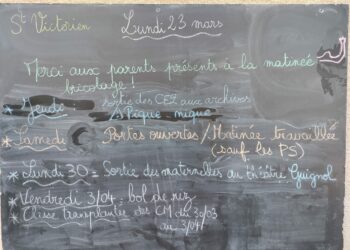 St Victorien Lundi 23 mars
Merci aux parents présents à la matinée
bricolage !
* Jeudi sortie des CE2 aux archives
Pique-nique
* Samedi Portes ouvertes / Matinée travaillée
(sauf les PS)
* Lundi 30 = Sortie des maternelles au théâtre Guignol
* Vendredi 3/04 = bol de riz
* Classe transplantée des CM du 30/03
au 3/04